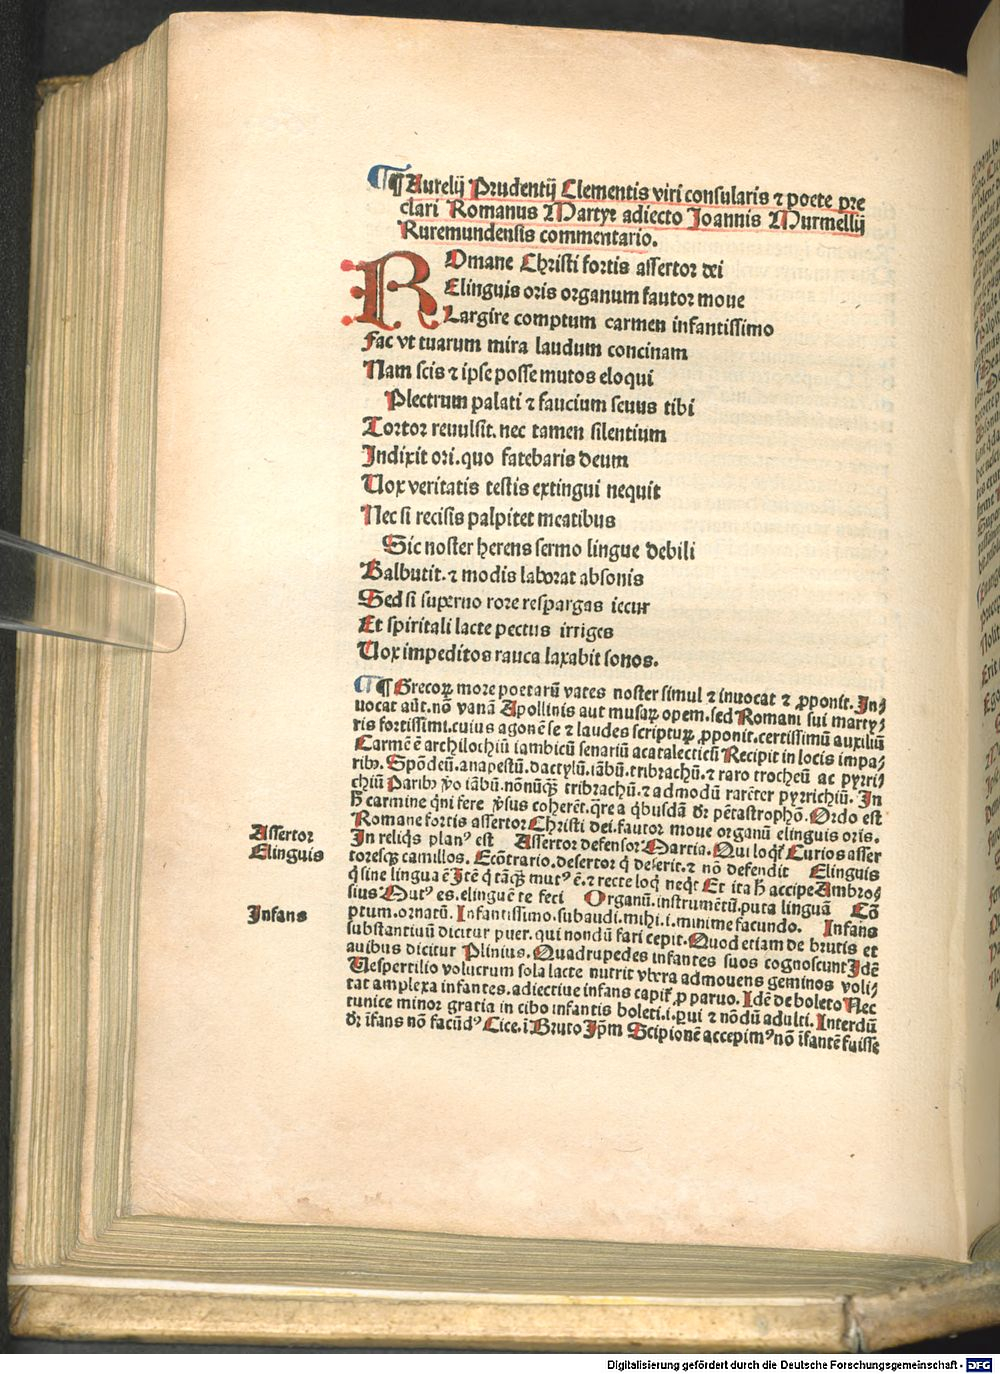 ¶ Aurelij Prudentij Clementis viri consularis ⁊ poete pre
clari Romanus Martyr adiecto Joannis Murmellij
Ruremundensis commentario.
ROmane Christi fortis assertor dei
Elinguis oris organum fautor moue
Largire comptum carmen infantissimo
Fac vt tuarum mira laudum concinam
Nam scis ⁊ ipse posse mutos eloqui
Plectrum palati ⁊ faucium seuus tibi
Tortor reuulsit. nec tamen silentium
Indixit ori. quo fatebaris deum
Uox veritatis testis extingui nequit
Nec si recisis palpitet meatibus
Sic noster herens sermo lingue debili
Balbutit. ⁊ modis laborat absonis
Sed si superno rore respargas iecur
Et spiritali lacte pectus irriges
Uox impeditos rauca laxabit sonos.
¶ Grecoꝝ more poetarū vates noster simul ⁊ inuocat ⁊ ꝓponit. In⸗
uocat aūt. nō vanā Apollinis aut musaꝝ opem. sed Romani sui marty⸗
ris fortissimi. cuius agonē se ⁊ laudes scripturꝝ ꝓponit. certissimū auxiliū
Carmē ē archilochiū iambicū senariū acatalecticū Recipit in locis impa⸗
ribꝫ. Spōdeū. anapestū. dactylū. iābū. tribrachū. ⁊ raro trocheū ac pyrri⸗
chiū Paribꝫ ꝟo iābū. nōnūꝗꝫ tribrachū. ⁊ admodū rarēter pyrrichiū. In
ħ carmine ꝗni fere ꝟsus coherēt. ꝗre a ꝗbusdā dr̄ pētastrophō. Ordo est
Romane fortis assertor Christi dei. fautor moue organū elinguis oris.
Assertor
In reliꝗs planꝰ est Assertor defensor Martia. Qui loꝗt̄ Curios asser
Elinguis
toresꝗꝫ camillos. Ecōtrario. desertor ꝗ deserit. ⁊ nō defendit Elinguis
ꝗ sine lingua ē Itē ꝗ tāꝗꝫ mutꝰ ē. ⁊ recte loꝗ neꝗt Et ita ħ accipe Ambro⸗
sius Mutꝰ es. elinguē te feci Organū. instrumētū. puta linguā Cō
Infans
ptum. ornatū. Infantissimo. subaudi. mihi. i. minime facundo. Infans
substantiuū dicitur puer. qui nondū fari cepit. Quod etiam de brutis et
auibus dicitur Plinius. Quadrupedes infantes suos cognoscunt Idē
Uespertilio volucrum sola lacte nutrit vbera admouens geminos voli⸗
tat amplexa infantes. adiectiue infans capit̄ ꝓ paruo. Idē de boleto Nec
tunice minor gratia in cibo infantis boleti. i. pui ⁊ nōdū adulti. Interdū
dr̄ īfans nō facūdꝰ Cice. ī Bruto Jpm̄ Scipionē accepimꝰ nō īfantē fuisse
Digitalisierung gefördert durch die Deutsche Forschungsgemeinschaft - DFG